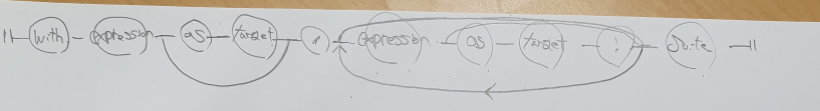 with expression as target , expression as target : Suite